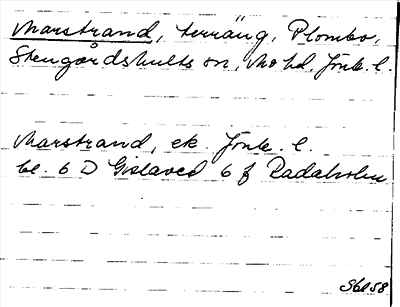 Marstrand, terräng, Plombo,
Stengårdshults sn, Mo hd, Jönk. l.
Marstrand, ek. Jönk. l.
bl. 6 D Gislaved 6 f Radaholm
S6l58